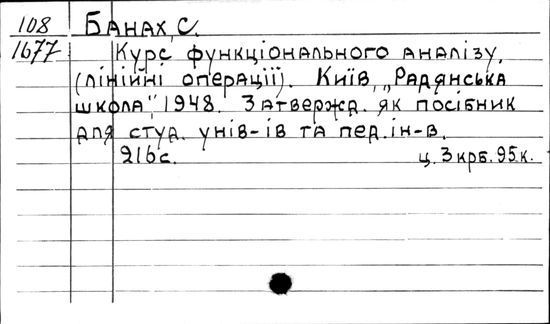 108 Банах, С.
1677 Курс функціонального аналізу.
(лінійні операції). Київ, „Радянська
школа”, 1948. Затвержд. як посібник
для студ. унів-ів та пед. ін-в.
216с. ц. 3 крб. 95 к.